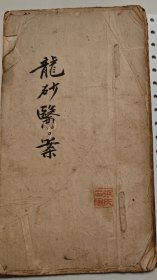 龍砂醫案